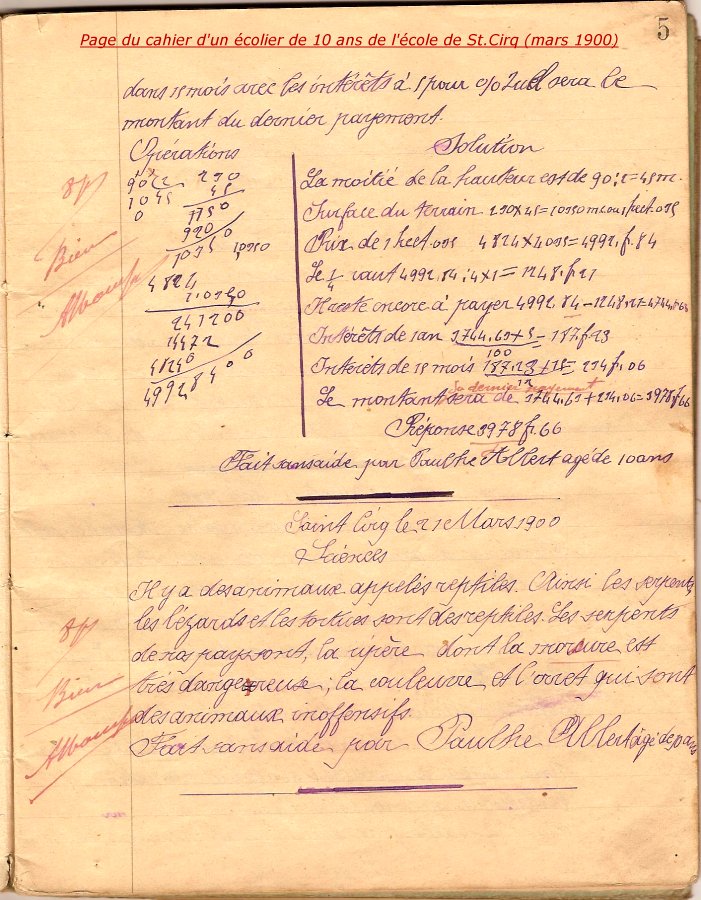 5
Page du cahier d'un écolier de 10 ans de l'école de St.Cirq (mars 1900)
dans 15 mois avec les intérêts à 5 pour %. Quel sera le
montant du dernier payement.
Opérations
90 2
10 45
0
230
45
1150
920
10350
4824
1.0350
241200
14472
48240
49928400
8 pts
Bien
Solution
La moitié de la hauteur est de 90:2=45m.
Surface du terrain 230×45=10350m.c. ou 1 hect.035
Prix de 1 hect.035 4824×1.035=4992.f.84
Le 1/4 vaut 4992.84:4×1=1248.f.21
Il reste encore à payer 4992.84-1248.21=3744.f.63
Intérêts de 1 an 3744.63×5=187.f.23
100
Intérêts de 15 mois 187.23×15=234f.06
12
du dernier payement
Le montant sera de 3744.63+234.06=3978f.66
Réponse 3978f.66
Fait sans aide par Paulhe Albert agé de 10 ans
Saint Cirq le 21 Mars 1900
Sciences
Il y a des animaux appelés reptiles. Ainsi les serpents,
les lézards et les tortues sont des reptiles. Les serpents
de nos pays sont, la vipère dont la morsure est
très dangereuse; la couleuvre et l'orvet qui sont
des animaux inoffensifs.
Fait sans aide par Paulhe Albert âgé de 10 ans
8 pts
Bien